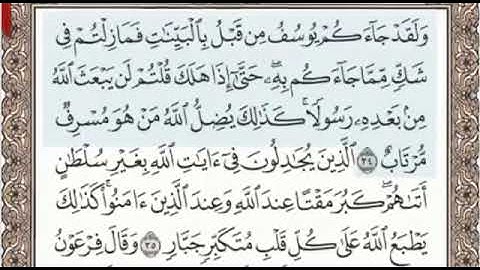 وَلَقَدْ جَآءَكُمْ يُوسُفُ مِن قَبْلُ بِٱلْبَيِّنَٰتِ فَمَا زِلْتُمْ فِى
شَكٍّ مِّمَّا جَآءَكُم بِهِۦ ۖ حَتَّىٰٓ إِذَا هَلَكَ قُلْتُمْ لَن يَبْعَثَ ٱللَّهُ
مِنۢ بَعْدِهِۦ رَسُولًا ۚ كَذَٰلِكَ يُضِلُّ ٱللَّهُ مَنْ هُوَ مُسْرِفٌ
مُّرْتَابٌ ٣٤ ٱلَّذِينَ يُجَٰدِلُونَ فِىٓ ءَايَٰتِ ٱللَّهِ بِغَيْرِ سُلْطَٰنٍ
أَتَىٰهُمْ ۖ كَبُرَ مَقْتًا عِندَ ٱللَّهِ وَعِندَ ٱلَّذِينَ ءَامَنُوا۟ ۚ كَذَٰلِكَ
يَطْبَعُ ٱللَّهُ عَلَىٰ كُلِّ قَلْبِ مُتَكَبِّرٍ جَبَّارٍ ٣٥ وَقَالَ فِرْعَوْنُ